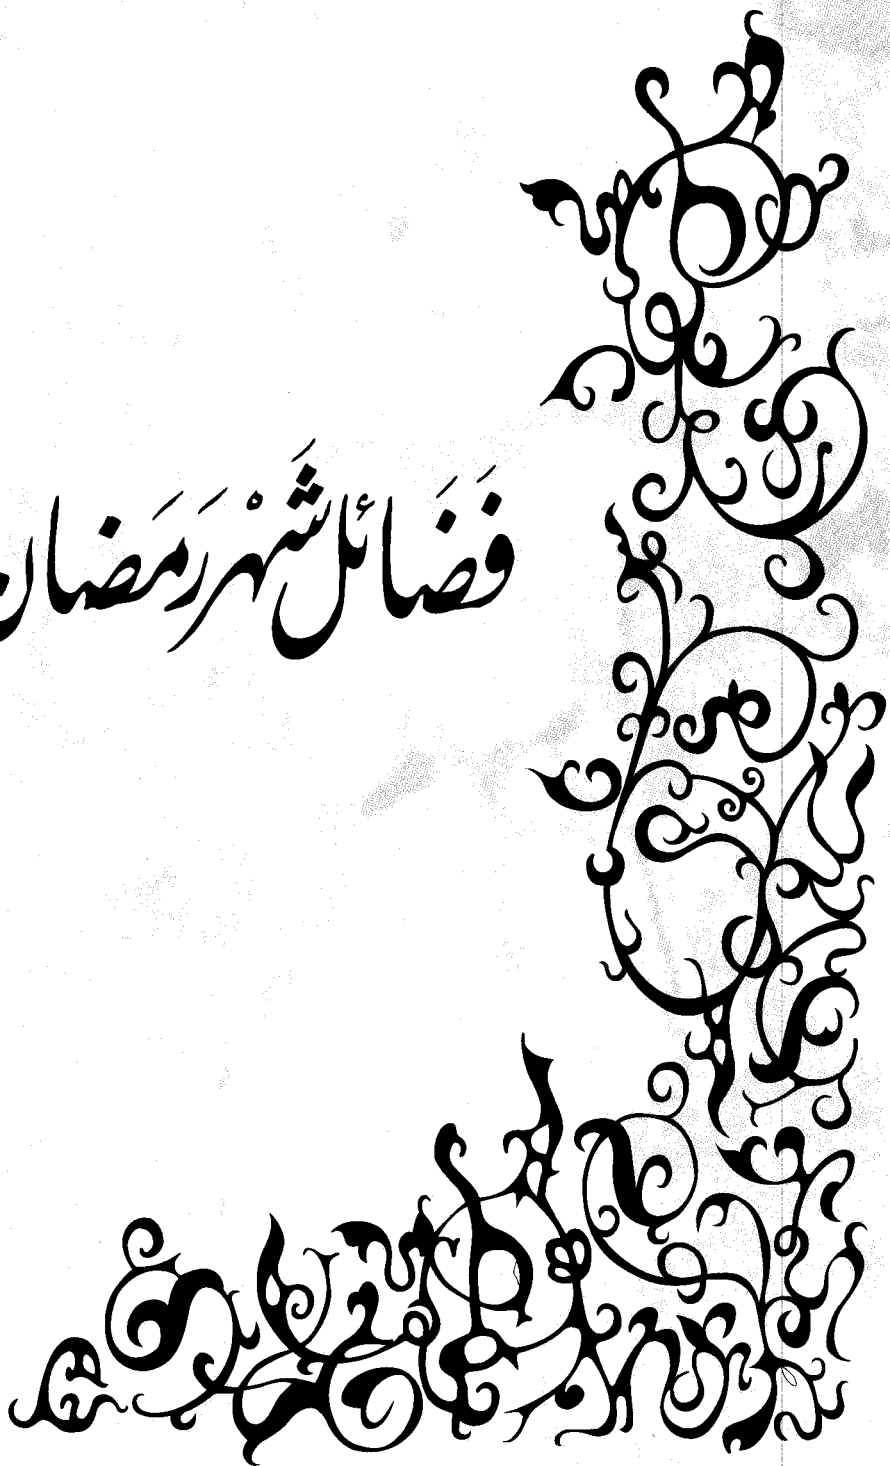 فَضَائل شَهْر رَمَضَان